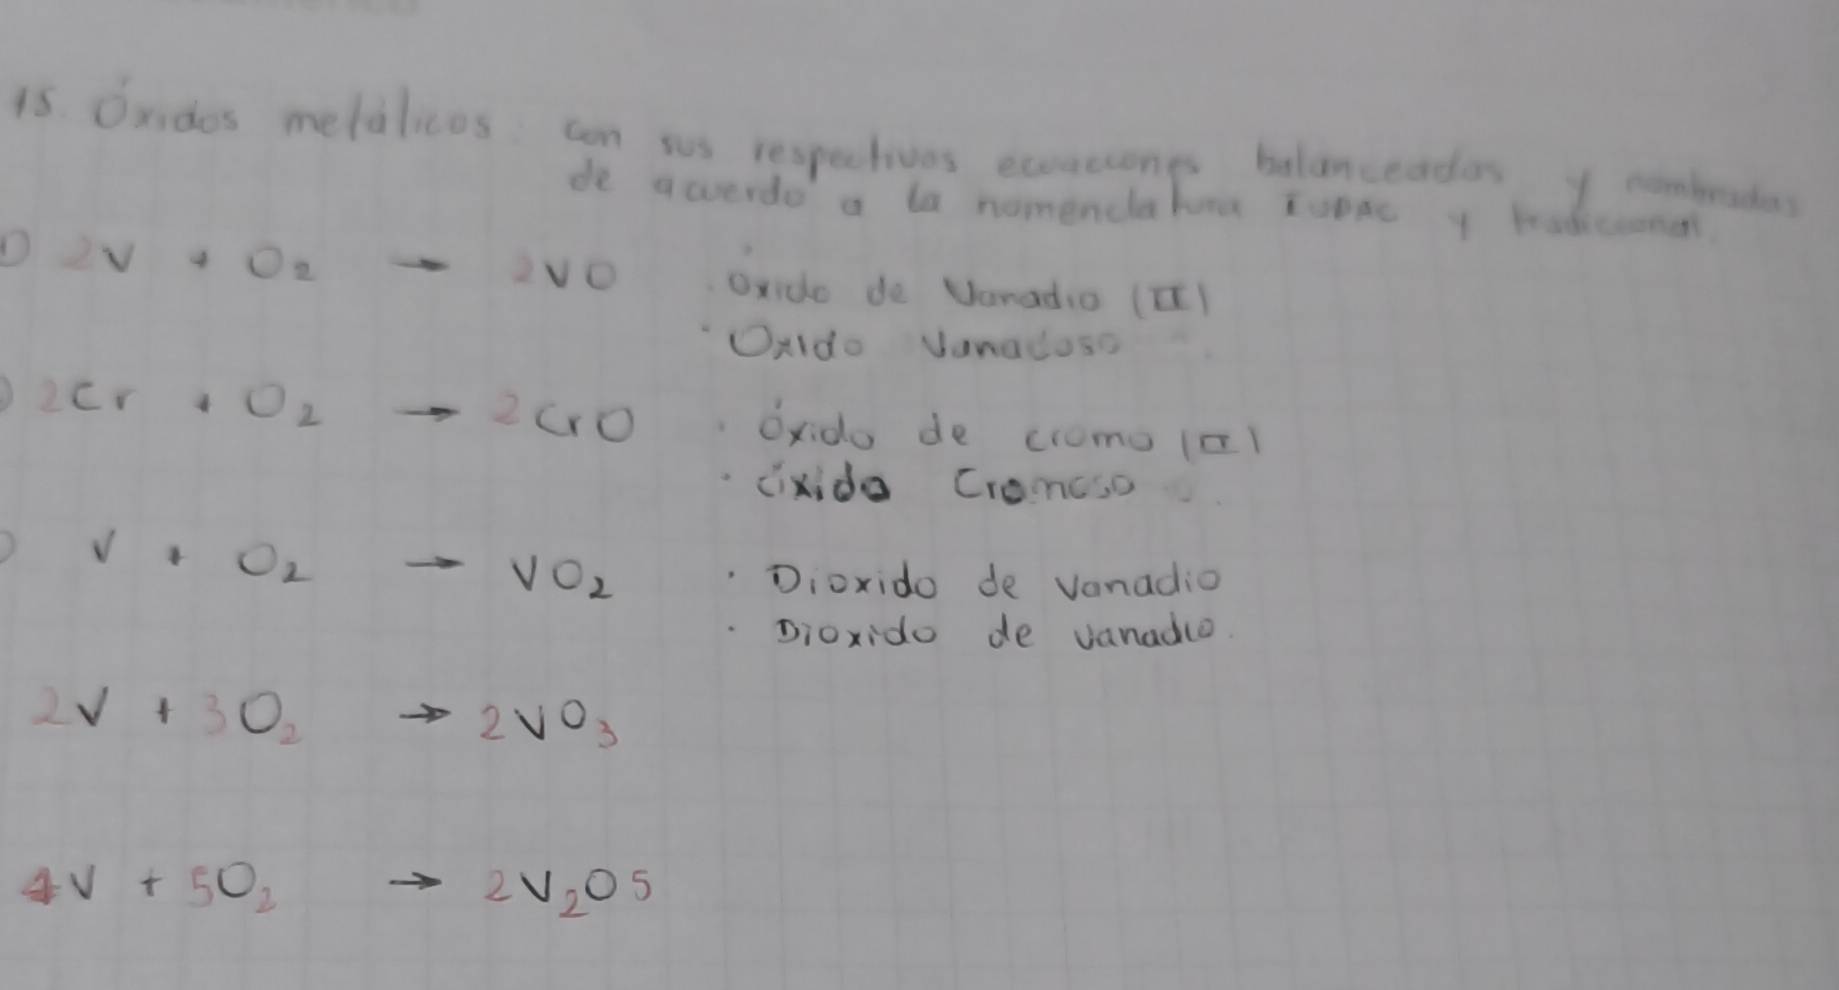 15. Óxidos metálicos: con sus respectivas ecuaciones balanceadas y nombradas
de acuerdo a la nomenclatura IUPAC y tradicional.
2V + O₂ → 2VO · óxido de Vanadio (II)
· Oxido Vanadoso
2Cr + O₂ → 2CrO · óxido de cromo (II)
· óxido Cromoso
V + O₂ → VO₂ · Dioxido de vanadio
· Dioxido de vanadio.
2V + 3O₂ → 2VO₃
4V + 5O₂ → 2V₂O5